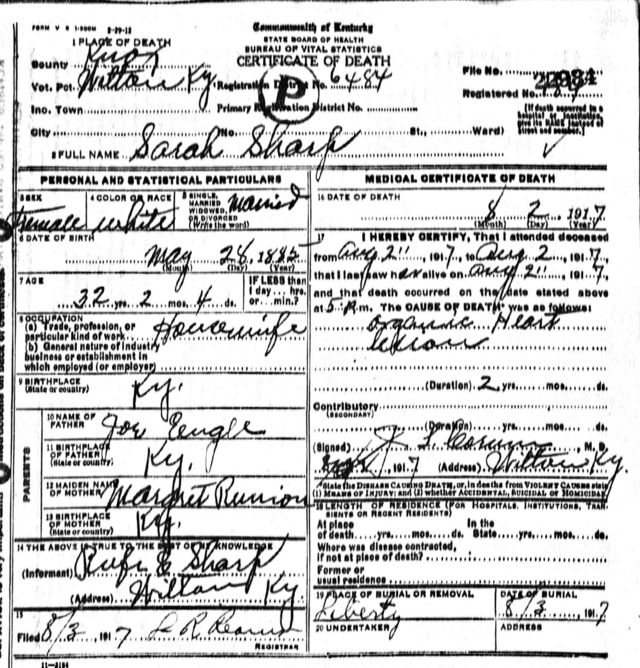 FORM V S 1-500M 8-29-13
Commonwealth of Kentucky
STATE BOARD OF HEALTH
BUREAU OF VITAL STATISTICS
CERTIFICATE OF DEATH
1 PLACE OF DEATH
County Knox
Vot. Pct. Wilton Ky. Registration District No. 6484
Inc. Town Primary Registration District No.
City No. St., Ward)
File No.
Registered No.
[If death occurred in a hospital or institution, give its NAME instead of street and number.]
2 FULL NAME Sarah Sharp
PERSONAL AND STATISTICAL PARTICULARS
3 SEX Female
4 COLOR OR RACE white
5 SINGLE, MARRIED WIDOWED, OR DIVORCED (Write the word) Married
6 DATE OF BIRTH
May 28, 1885
(Month) (Day) (Year)
7 AGE
32 yrs. 2 mos. 4 ds.
IF LESS than 1 day ... hrs. or ... min.?
8 OCCUPATION
(a) Trade, profession, or particular kind of work Housewife
(b) General nature of industry business or establishment in which employed (or employer)
9 BIRTHPLACE
(State or country) Ky.
PARENTS
10 NAME OF FATHER Joe Engle
11 BIRTHPLACE OF FATHER (State or country) Ky.
12 MAIDEN NAME OF MOTHER Margret Runion
13 BIRTHPLACE OF MOTHER (State or country) Ky.
14 THE ABOVE IS TRUE TO THE BEST OF MY KNOWLEDGE
(Informant) Sharp
(Address) Wilton Ky
15
Filed 8/3, 1917
REGISTRAR
11-3184
MEDICAL CERTIFICATE OF DEATH
16 DATE OF DEATH
8 2, 1917
(Month) (Day) (Year)
17 I HEREBY CERTIFY, That I attended deceased
from Aug 2", 1917, to Aug 2, 1917,
that I last saw her alive on Aug 2", 1917,
and that death occurred on the date stated above
at 5 P.m. The CAUSE OF DEATH was as follows:
Organic Heart
lesion
(Duration) 2 yrs. mos. ds.
Contributory
(SECONDARY)
(Duration) yrs. mos. ds.
(Signed) M. D.
1917 (Address) Wilton Ky.
State the DISEASE CAUSING DEATH, or, in deaths from VIOLENT CAUSES state
(1) MEANS OF INJURY; and (2) whether ACCIDENTAL, SUICIDAL or HOMICIDAL
18 LENGTH OF RESIDENCE (FOR HOSPITALS, INSTITUTIONS, TRANSIENTS OR RECENT RESIDENTS)
At place of death yrs. mos. ds. In the State yrs. mos. ds.
Where was disease contracted,
if not at place of death?
Former or
usual residence
19 PLACE OF BURIAL OR REMOVAL
Liberty
DATE OF BURIAL
8/3, 1917
20 UNDERTAKER
ADDRESS